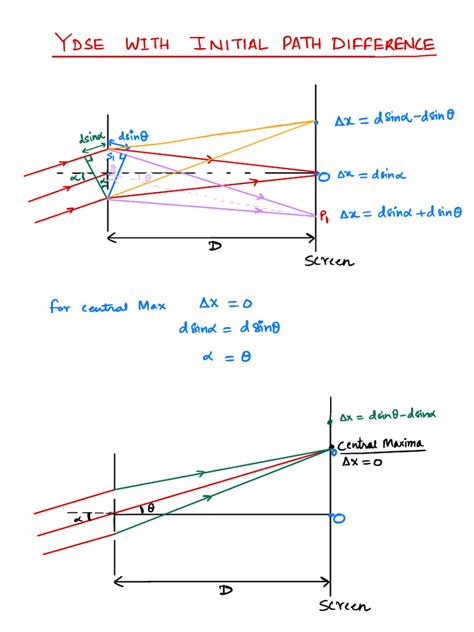 YDSE WITH INITIAL PATH DIFFERENCE
dsinα
dsinθ
Δx = dsinα-dsinθ
S1
α
θ
α
θ
O Δx = dsinα
P1 Δx = dsinα+dsinθ
D
Screen
for central Max Δx = 0
dsinα = dsinθ
α = θ
Δx = dsinθ-dsinα
Central Maxima
Δx = 0
α
θ
O
D
Screen